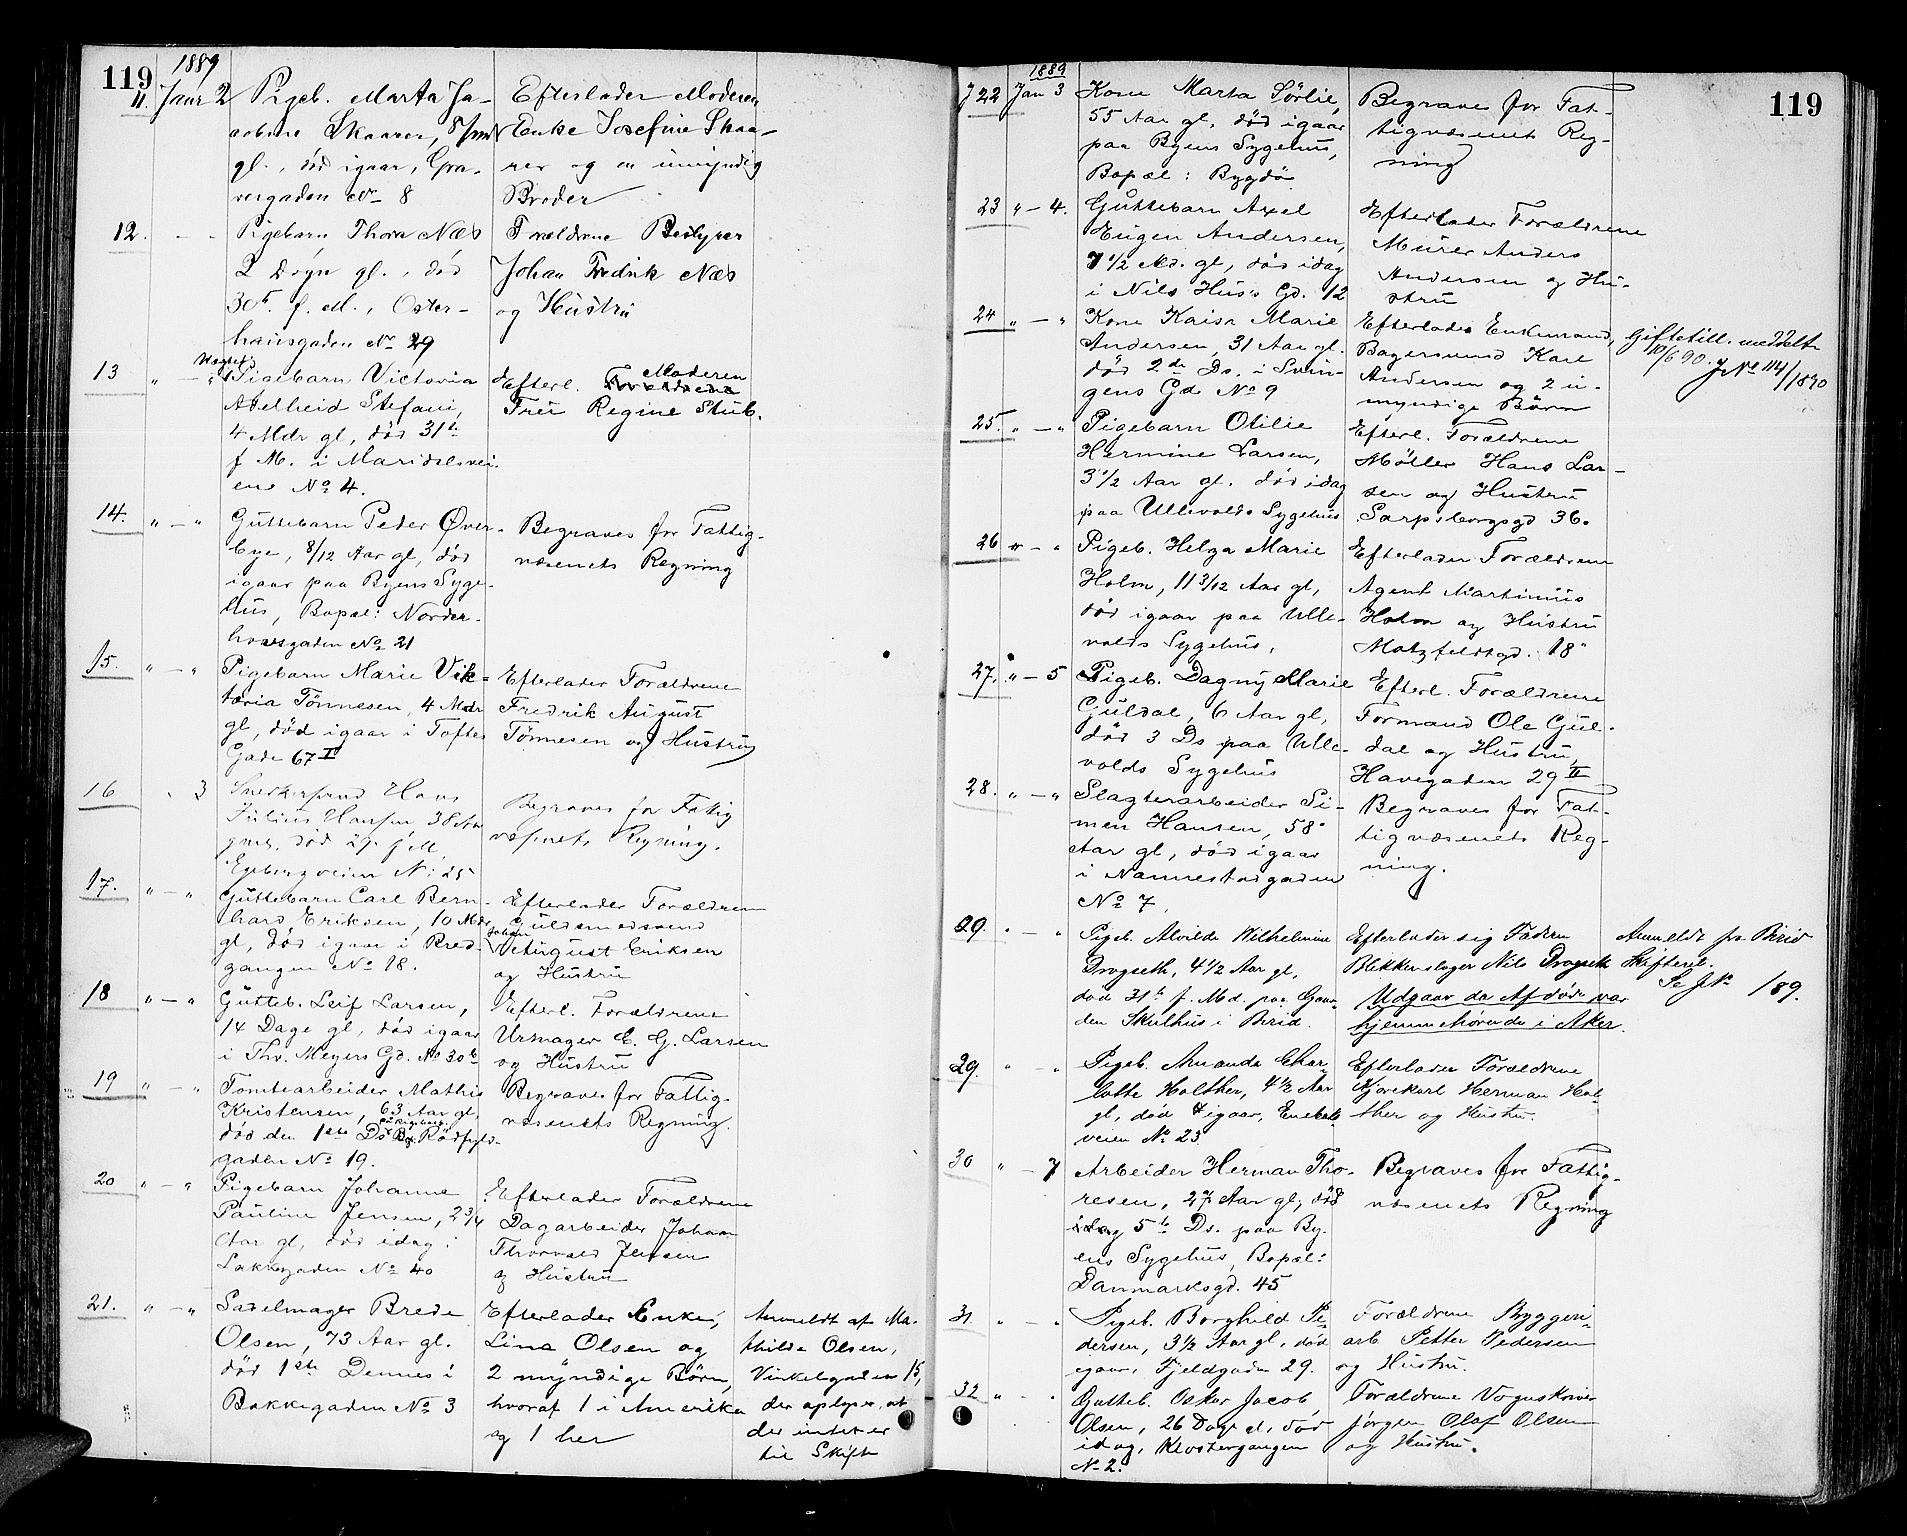 119
1889
11. Janr 2 Pigeb. Marta Ja-
cobine Skaarer, 8/mdr
gl., död igaar, Gra-
vergaden No 8
Efterlader Moderen
Enke Josefine Skaa-
rer og en umyndig
Broder
12. Pigebarn Thora Næs
2 Døgn gl., död
30te f. M., Oster-
hausgaden No 29
Forældrene Bestyrer
Johan Fredrik Næs
og Hustru
13 " - " Pigebarn Victoria
Adelheid Stefani,
4 Mdr gl, död 31te
f M. i Maridalsvei-
ene No 4.
Efterl. Forældrene Moderen
Fru Regine Stub.
14. " - " Guttebarn Peder Øver-
bye, 8/12 Aar gl, död
igaar paa Byens Syge-
hus, Bopæl: Norder-
hovsgaden No 21
Begraves for Fattig-
væsenets Regning
15. " - " Pigebarn Marie Vik-
toria Tönnesen, 4 Mdr
gl, död igaar i Toftes
Gade 67 II
Efterlader Forældrene
Fredrik August
Tönnesen og Hustru
16 " 3 Snekkersvend Hans
Julius Hansen 38 Aar
gml. död 29. f. M.
Egebergveien No 25
Begraves for Fattig
væsenets Regning.
17. " - " Guttebarn Carl Bern-
hard Eriksen, 10 Mdr
gl, död igaar i Bred-
gangen No 18.
Efterlader Forældren
Guldsmedsvend
Johan August Eriksen
og Hustru
18 " - " Gutteb. Leif Larsen,
14 Dage gl, död igaar
i Thv. Meyers Gd. No 30b
Efterl. Forældrene
Urmager C. G. Larsen
og Hustru
19 " - " Tomtearbeider Mathis
Kristensen, 63 Aar gl,
död den 1ste Ds Rödfyld-
gaden No 19.
Begraves for Fattig-
væsenets Regning.
20 " - " Pigebarn Johanne
Pauline Jensen, 2 3/4
Aar gl, död idag i
Lakkegaden No 40
Efterlader Forældrene
Dagarbeider Johan
Thorvald Jensen
og Hustru
21. " - " Sadelmager Brede
Olsen, 73 Aar gl.
död 1ste Dennes i
Bakkegaden No 3
Efterlader Enke,
Lina Olsen og
2 myndige Børn,
hvoraf 1 i Amerika
og 1 her
Anmeldt af Ma-
thilde Olsen,
Vinkelgaden 15,
der oplyser, at
der intet er
til Skifte
119
1889
J 22 Jan 3 Kone Marta Sörlie,
55 Aar gl, död igaar
paa Byens Sygehus,
Bopæl: Bygdö
Begraves for Fat-
tigvæsenets Reg-
ning
23 " - 4. Guttebarn Axel
Eugen Andersen,
7 1/2 Md. gl, död idag
i Nils Hus's Gd. 12
Efterlader Forældrene
Murer Anders
Andersen og Hu-
stru
24 " - " Kone Kaisa Marie
Andersen, 31 Aar gl.
död 2de Ds. i Svin-
gens Gd No 9
Efterlader Enkemand,
Bagersvend Karl
Andersen og 2 u-
myndige Börn
Giftetill. meddelt
10/6 90. J No 114/1890
25. " - " Pigebarn Otilie
Hermine Larsen,
3 1/2 Aar gl. död idag
paa Ullevolds Sygehus
Efterl. Forældrene
Möller Hans Lar-
sen og Hustru
Sarpsborgsgd 36.
26 " - " Pigeb. Helga Marie
Holm, 11 3/12 Aar gl,
död igaar paa Ulle-
volds Sygehus,
Efterlader Forældrene
Agent Martinius
Holm og Hustru
Motzfeldtsgd. 18
27. " - 5 Pigeb. Dagny Marie
Guldal, 6 Aar gl,
död 3 Ds paa Ulle-
volds Sygehus
Efterl. Forældrene
Formand Ole Gul-
dal og Hustru,
Havegaden 29 II
28. " - " Slagterarbeider Si-
men Hansen, 58
Aar gl, död igaar
i Nannestadgaden
No 7.
Begraves for Fat-
tigvæsenets Reg-
ning.
29. " - " Pigeb. Alvilde Wilhelmine
Drogseth, 4 1/2 Aar gl,
død 31te f. Md. paa Gaar-
den Skulhus i Birid.
Efterlader sig Faderen
Blikkenslager Nils Drogseth
Udgaar da Afdøde var
hjemmehørende i Aker.
Anmeldt fra Birid
Skifteret.
Se J No 189.
29. " - " Pigeb. Amanda Char-
lotte Holther, 4 1/2 Aar
gl, død igaar, Enebak-
veien No 23
Efterlader Forældrene
Kjørekarl Herman Hol-
ther og Hustru.
30 " - 7 Arbeider Herman Tho-
resen, 27 Aar gl, död
idag 5te Ds. paa By-
ens Sygehus, Bopæl:
Danmarksgd. 45
Begraves for Fattig-
væsenets Regning
31 " - " Pigeb. Borghild Pe-
dersen, 3 1/2 Aar gl, død
igaar, Fjeldgaden 29.
Forældrene Byggeri-
arb. Petter Pedersen
og Hustru.
32 " - " Gutteb. Oskar Jacob
Olsen, 26 Dage gl, død
idag, Klostergangen
No 2.
Forældrene Vognskriver
Jørgen Olaf Olsen
og Hustru.